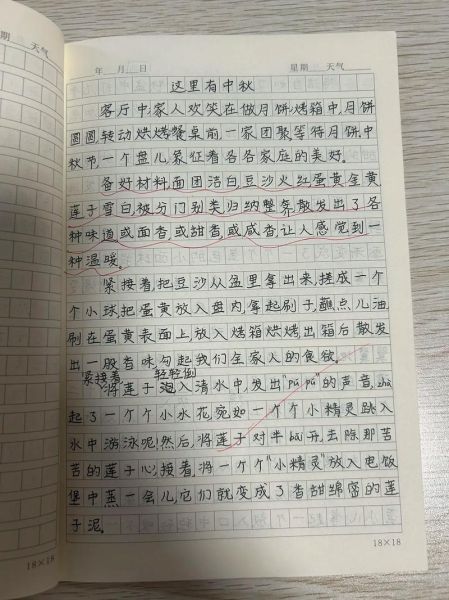 期 天气
年 月 日 星期 天气
这里有中秋
客厅中,家人欢笑在做月饼,烤箱中,月饼
圆圆,转动烘烤餐桌前,一家团聚等待月饼,中
秋节,一个盘儿,象征着各各家庭的美好。
备好材料面团洁白豆沙火红蛋黄金黄,
莲子雪白,被分门别类归纳整齐,散发出了各
种味道或面香,或甜香或咸香,让人感觉到一
种温暖。
紧接着把豆沙从盆里拿出来,搓成一个
个小球,把蛋黄放入盘内,拿起刷子,蘸点儿油,
刷在蛋黄表面上,放入烤箱烘烤出箱后散发
出一股香味,勾起我们全家人的食欲。
紧接着 轻轻倒
将莲子入清水中,发出"pū pū"的声音,
起了一个个小水花宛如一个个小精灵跳入
水中游泳呢!然后,将莲子对半bāi开,去除那苦
苦的莲子心,接着,将一个个"小精灵"放入电饭
煲中蒸一会儿,它们就变成了香甜绵密的莲
子泥。
18×18
18×18